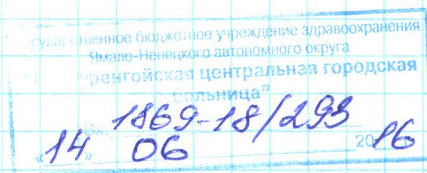 государственное бюджетное учреждение здравоохранения
Ямало-Ненецкого автономного округа
центральная городская
больница"
Вх. 1869-18/293
"14" 06 2016